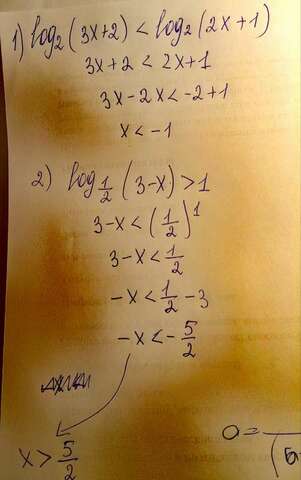 1) log₂(3x+2) < log₂(2x+1)
3x+2 < 2x+1
3x-2x < -2+1
x < -1
2) log 1/2 (3-x) > 1
3-x < (1/2)¹
3-x < 1/2
-x < 1/2 - 3
-x < - 5/2
x > 5/2